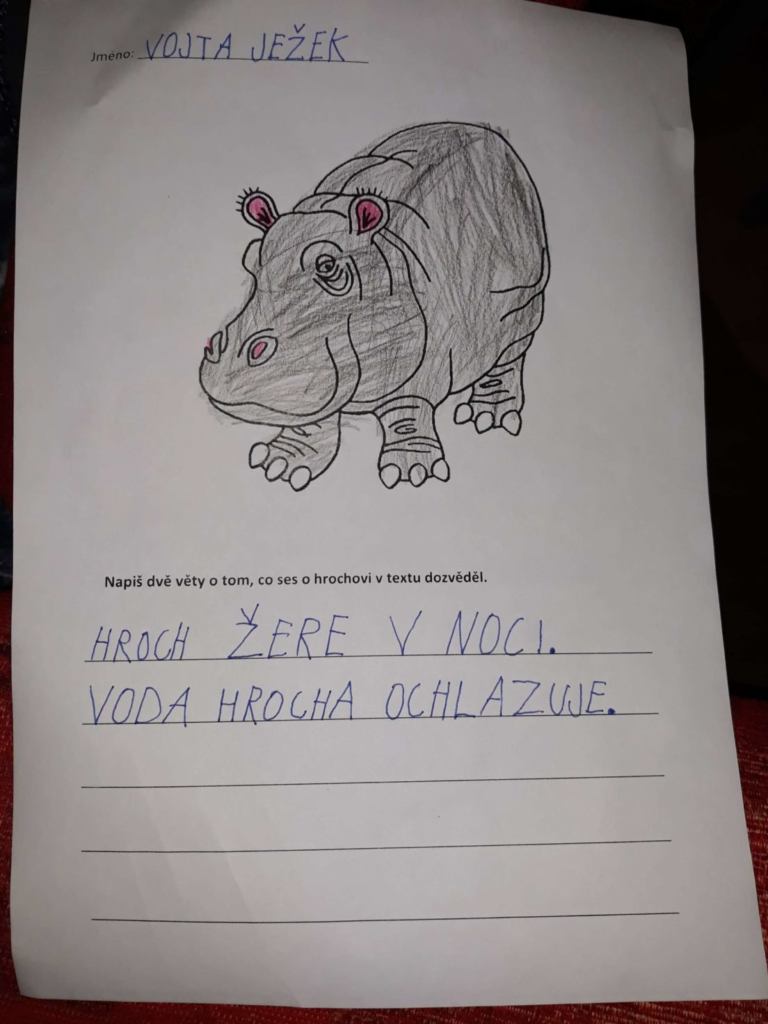 Jméno: VOJTA JEŽEK
Napiš dvě věty o tom, co ses o hrochovi v textu dozvěděl.
HROCH ŽERE V NOCI.
VODA HROCHA OCHLAZUJE.